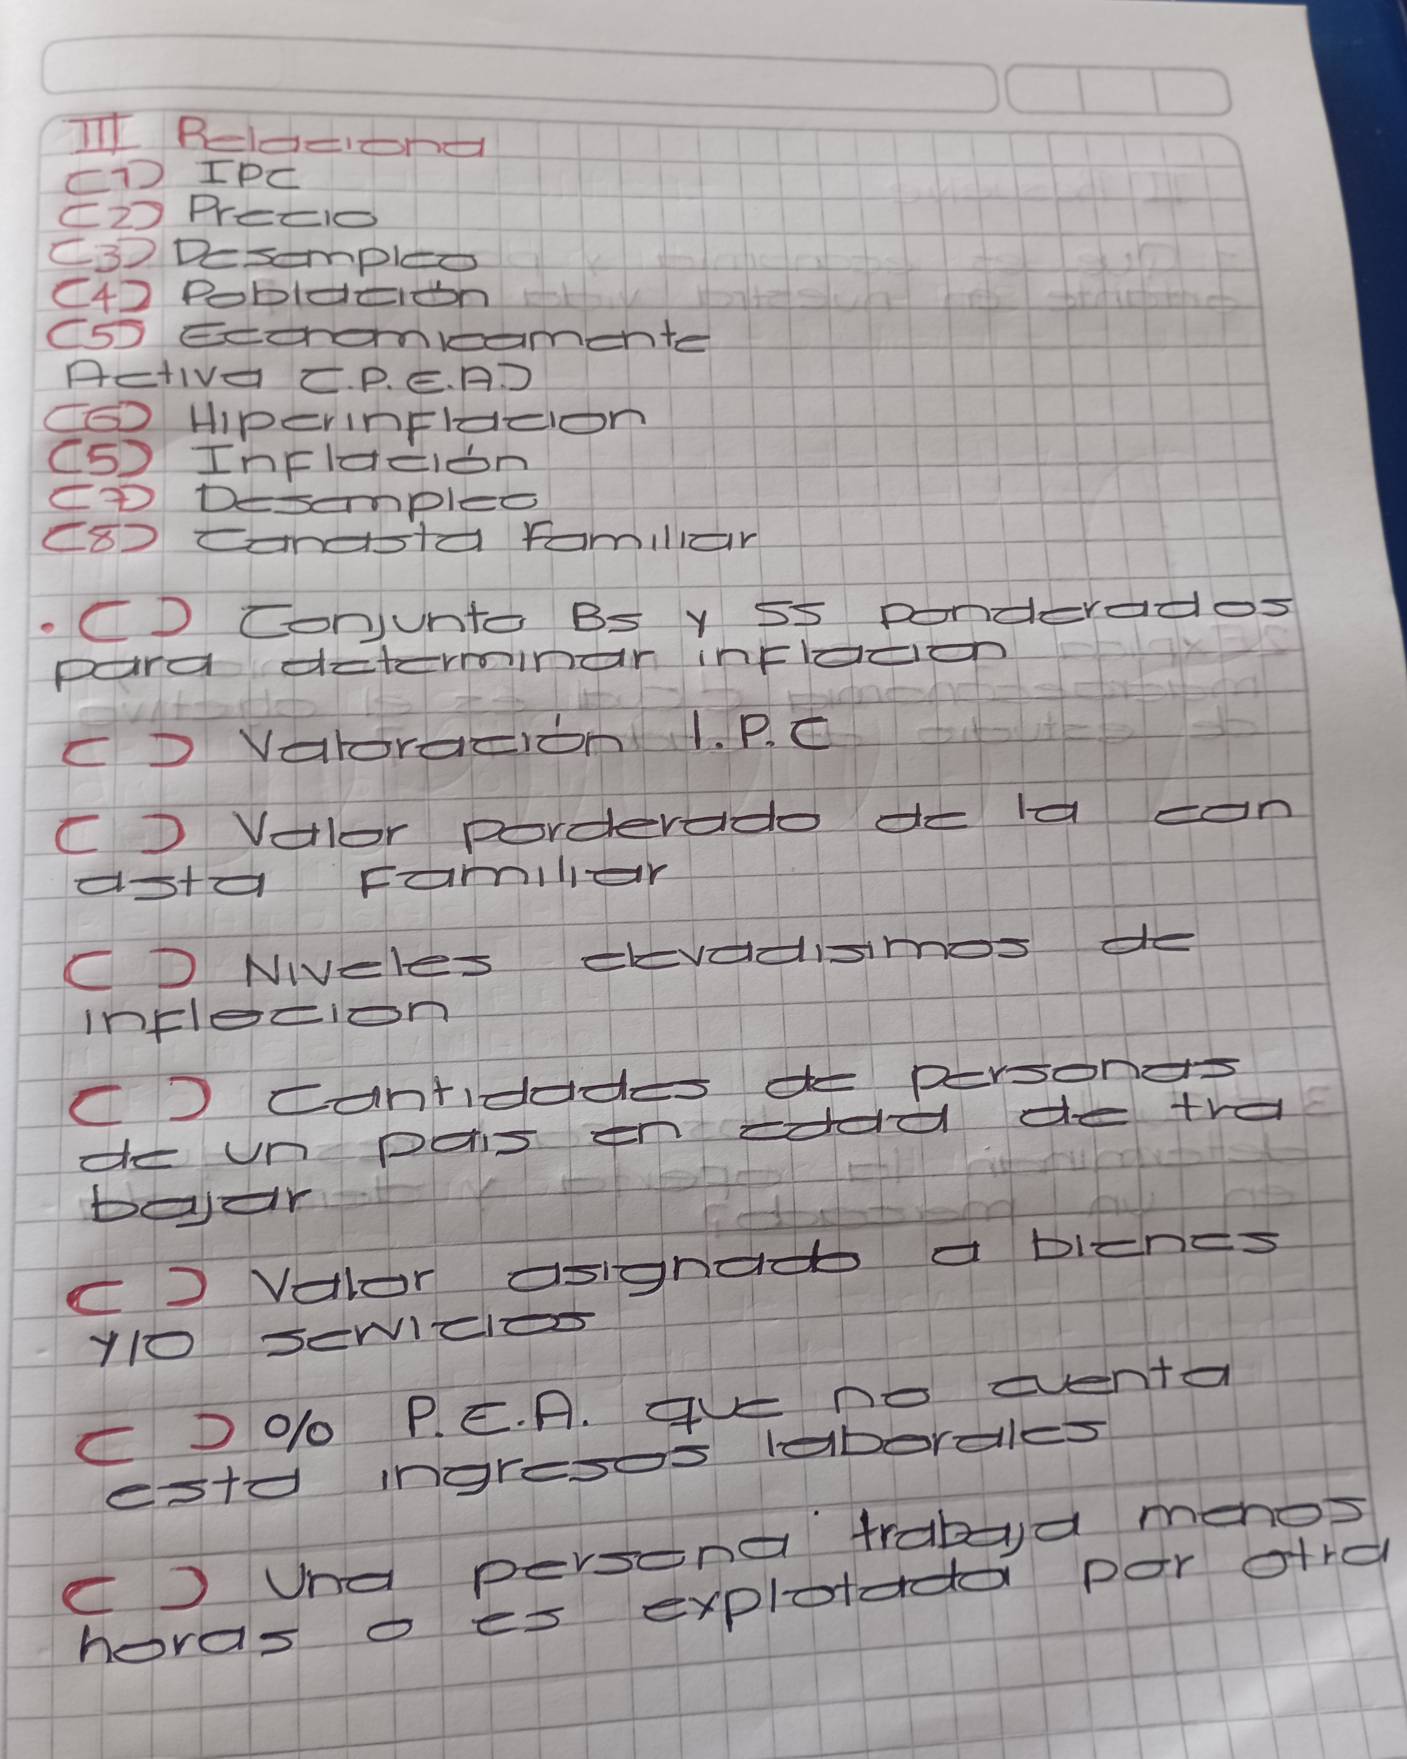 III Relaciona
(1) IPC
(2) Precio
(3) Desempleo
(4) Población
(5) Economicamente
Activa (.P.E.A.)
(6) Hiperinflacion
(5) Inflación
(7) Desempleo
(8) Canasta Familiar
. ( ) Conjunto Bs y SS ponderados
para determinar inflacion
( ) Valoración I.P.C
( ) Valor porderado de la can
asta Familiar
( ) Niveles elevadisimos de
inflecion
( ) Cantidades de personas
de un pais en edad de tra
bajar
( ) Valor asignado a bienes
y/o servicios
( ) % P.E.A. que no cuenta
esta ingresos laborales
( ) Una persona trabaja menos
horas o es explotada por otra